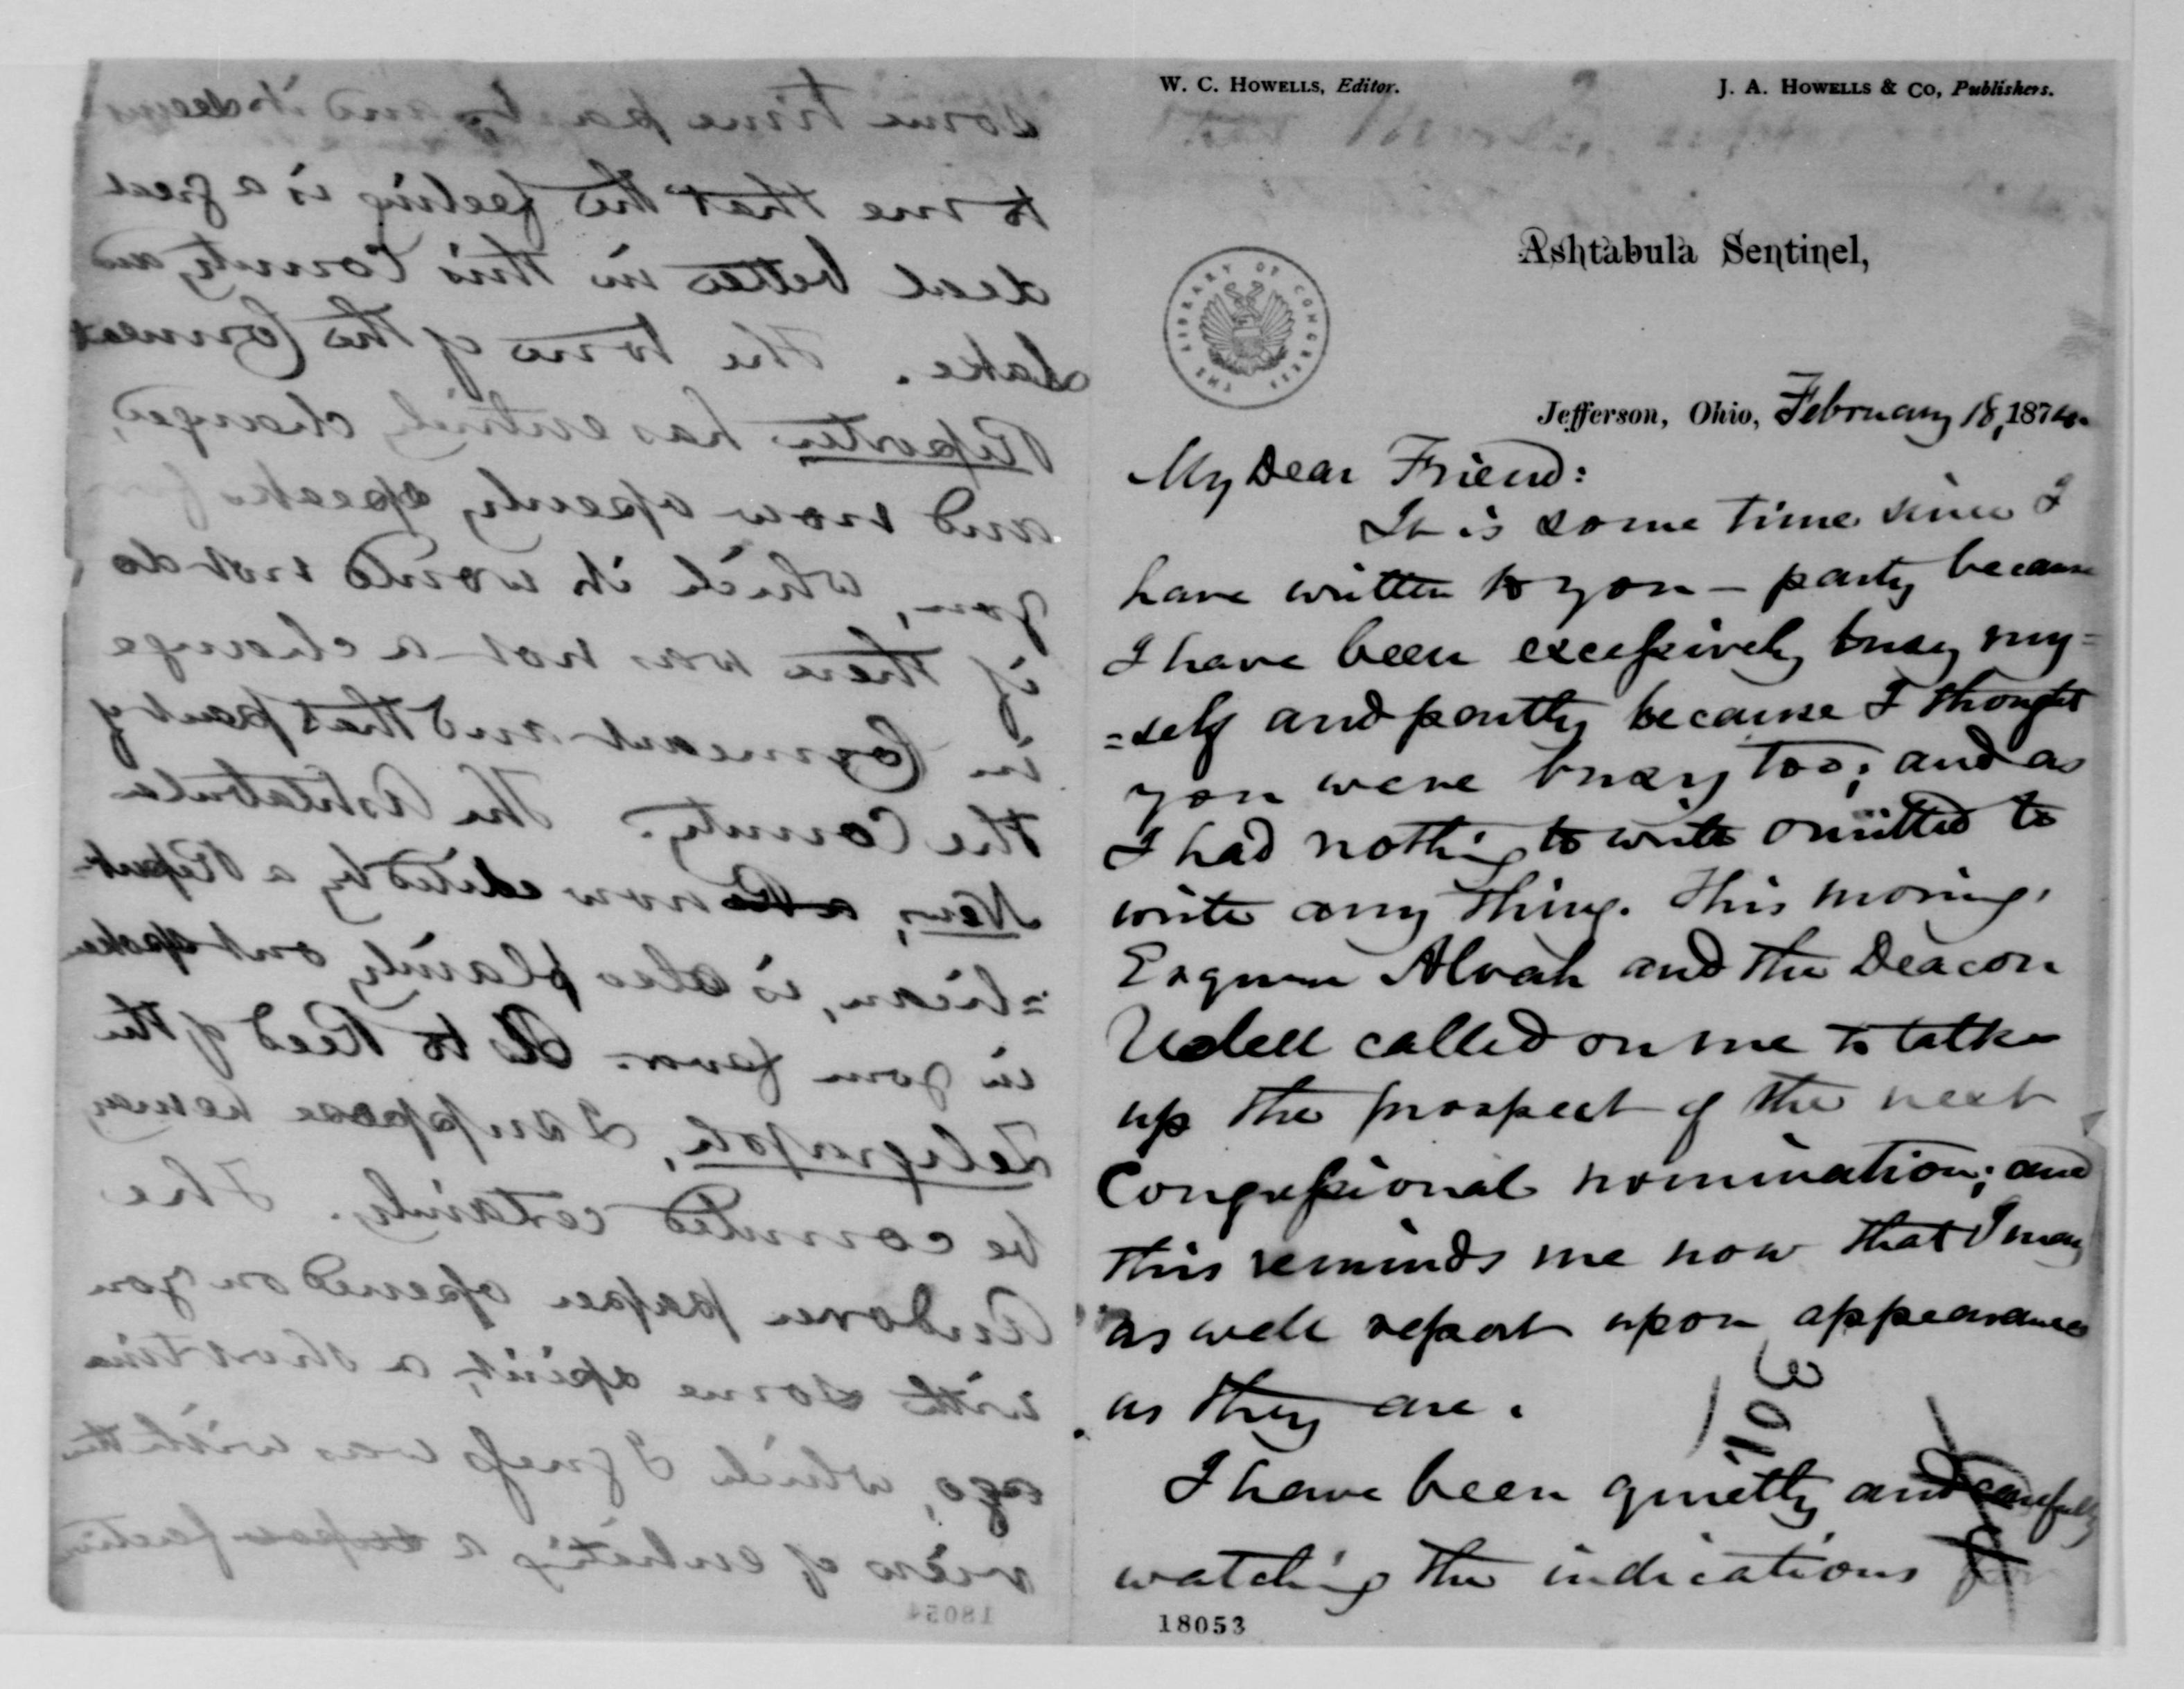 W. C. HOWELLS, Editor.
J. A. HOWELLS & CO, Publishers.
Ashtabula Sentinel,
THE LIBRARY OF CONGRESS
Jefferson, Ohio, February 18, 1874.
My Dear Friend:
It is some time since I
have written to you – partly because
I have been excessively busy my=
=self and partly because I thought
you were busy too; and as
I had nothing to write omitted to
write any thing. This morning,
Esquire Alvah and the Deacon
Udell called on me to talk
up the prospect of the next
Congressional nomination; and
this reminds me now that I may
as well report upon appearances
as they are.
I have been quietly and carefully
watching the indications for
301
18053
some time past, and it seems
to me that the feeling is a great
deal better in this County, and
Lake. The tone of the Conneaut
Reporter has entirely changed,
and now openly speaks for
you, which it would not do
if there was not a change
in Conneaut and that part of
the County. The Ashtabula
News, now edited by a Repub-
=lican, is also plainly out spoken
in your favor. As to Reed of the
Telegraph, I suppose he may
be counted certainly. The
Andover paper opened on you
with some spirit, a short time
ago, which I guess was with the
view of enlisting a faction
18054